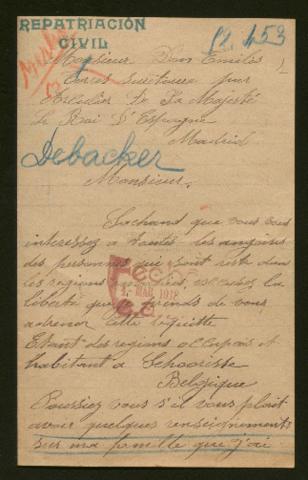 REPATRIACIÓN
CIVIL
12.453
Monsieur Don Emilio
Torres secretaire pur
De Sa Majesté
Le Roi D'Espagne
Madrid
Debacker
Monsieur,
Sachand que vous vous
interessez a toutes les angoises
des personnes qui sont resté dans
les regions occupés, excusez la
liberté que je prends de vous
adresser cette requette
Etant des regions occupés et
habitant a Schoorisse
Belgique
Poussiez vous s'il vous plait
avoir quelques renseignements
sur ma famille que j'ai